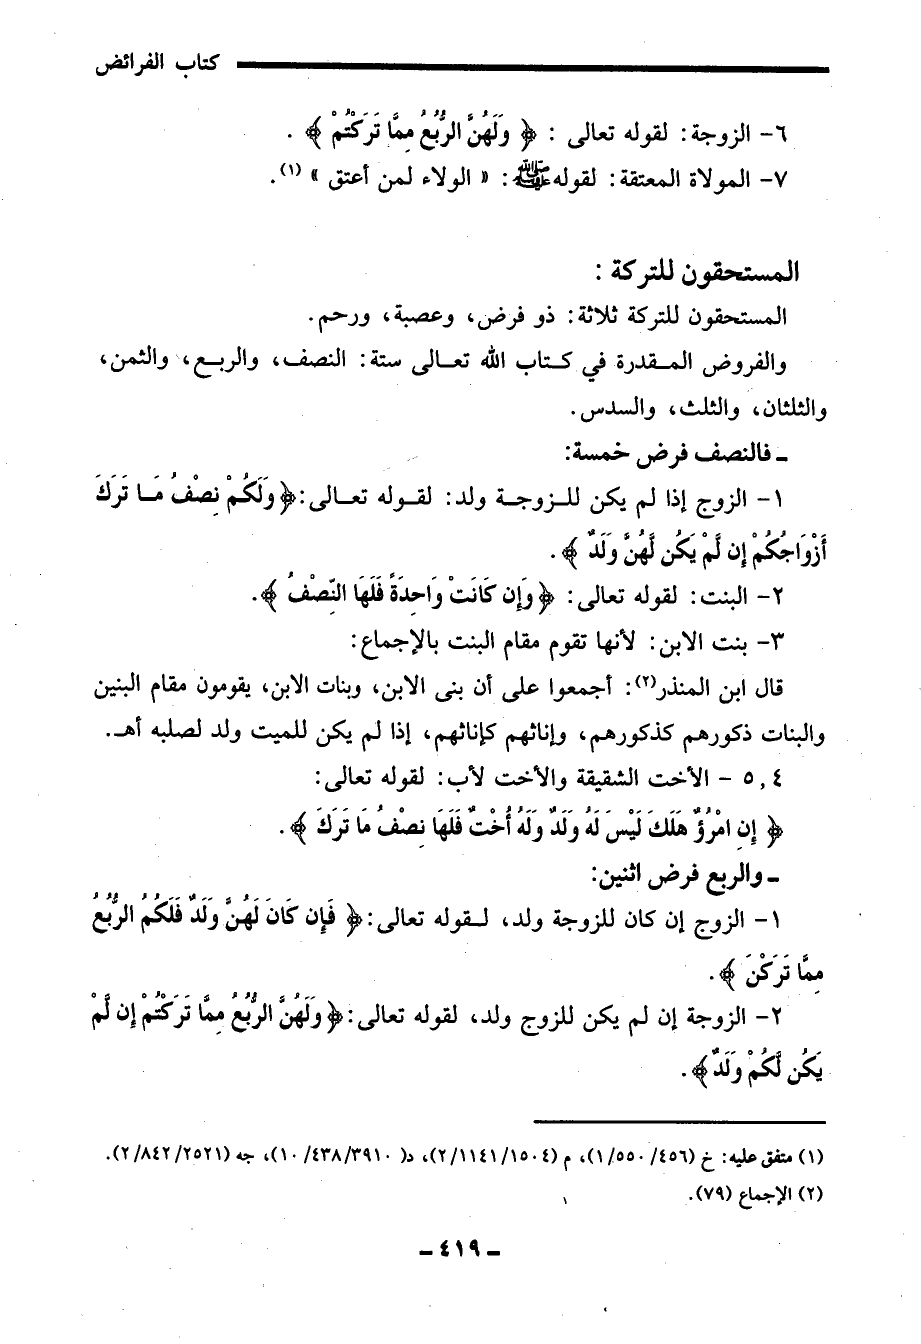 كتاب الفرائض
٦- الزوجة: لقوله تعالى : ﴿ وَلَهُنَّ الرُّبُعُ مِمَّا تَرَكْتُمْ ﴾ .
٧- المولاة المعتقة: لقوله ﷺ: « الولاء لمن أعتق » (١).
المستحقون للتركة :
المستحقون للتركة ثلاثة: ذو فرض، وعصبة، ورحم.
والفروض المقدرة في كتاب الله تعالى ستة: النصف، والربع، والثمن،
والثلثان، والثلث، والسدس.
ـ فالنصف فرض خمسة:
١- الزوج إذا لم يكن للزوجة ولد: لقوله تعالى: ﴿ وَلَكُمْ نِصْفُ مَا تَرَكَ
أَزْوَاجُكُمْ إِن لَّمْ يَكُن لَّهُنَّ وَلَدٌ ﴾.
٢- البنت: لقوله تعالى: ﴿ وَإِن كَانَتْ وَاحِدَةً فَلَهَا النِّصْفُ ﴾.
٣- بنت الابن: لأنها تقوم مقام البنت بالإجماع:
قال ابن المنذر(٢): أجمعوا على أن بنى الابن، وبنات الابن، يقومون مقام البنين
والبنات ذكورهم كذكورهم، وإناثهم كإناثهم، إذا لم يكن للميت ولد لصلبه أهـ.
٤, ٥ - الأخت الشقيقة والأخت لأب: لقوله تعالى:
﴿ إِنِ امْرُؤٌ هَلَكَ لَيْسَ لَهُ وَلَدٌ وَلَهُ أُخْتٌ فَلَهَا نِصْفُ مَا تَرَكَ ﴾.
ـ والربع فرض اثنين:
١- الزوج إن كان للزوجة ولد، لقوله تعالى: ﴿ فَإِن كَانَ لَهُنَّ وَلَدٌ فَلَكُمُ الرُّبُعُ
مِمَّا تَرَكْنَ ﴾.
٢- الزوجة إن لم يكن للزوج ولد، لقوله تعالى: ﴿ وَلَهُنَّ الرُّبُعُ مِمَّا تَرَكْتُمْ إِن لَّمْ
يَكُن لَّكُمْ وَلَدٌ ﴾.
(١) متفق عليه: خ (١/٥٥٠/٤٥٦)، م (٢/١١٤١/١٥٠٤)، د( ١٠/٤٣٨/٣٩١٠)، جه (٢/٨٤٢/٢٥٢١).
(٢) الإجماع (٧٩).
ـ ٤١٩ ـ